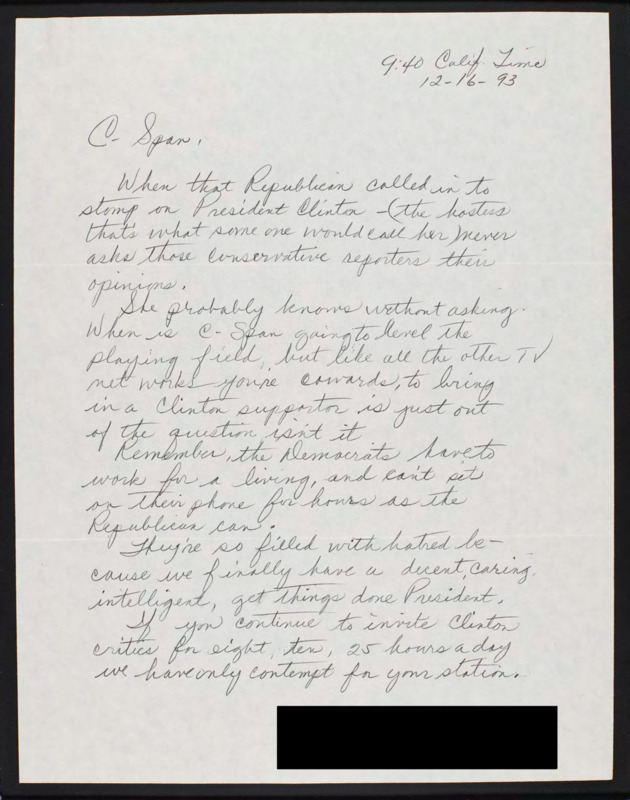 9:40 Calif. Time
12-16-93
C-Span,
When that Republican called in to
stomp on President Clinton - (the hostess
that's what some one would call her) never
asks those conservative reporters their
opinions.
She probably knows without asking.
When is C-Span going to level the
playing field, but like all the other TV
net works you're cowards, to bring
in a Clinton supportor is just out
of the question isn't it
Remember, the Democrats have to
work for a living, and can't set
on their phone for hours as the
Republican can.
They're so filled with hatred be-
cause we finally have a decent, caring,
intelligent, get things done President.
If you continue to invite Clinton
critics for eight, ten, 25 hours a day
we have only contempt for your station.